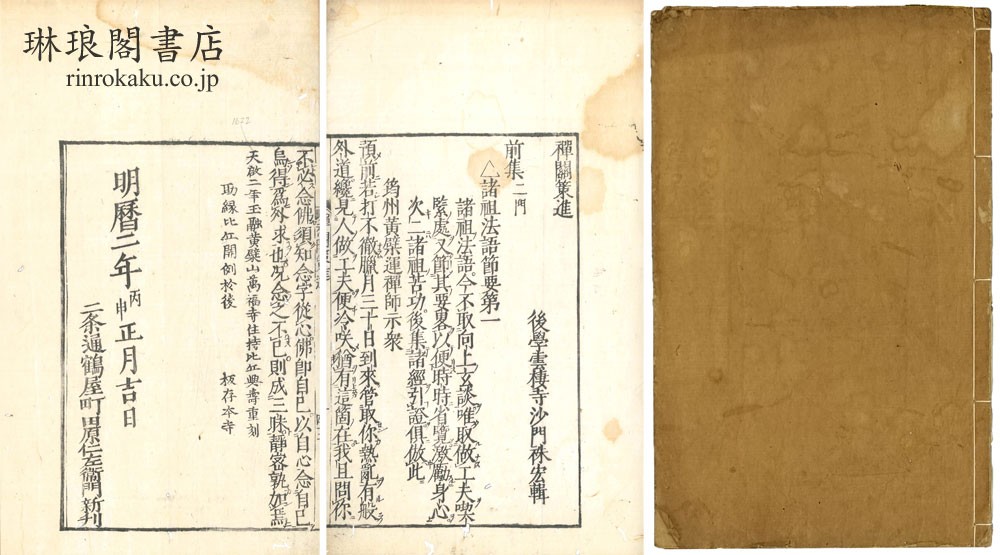 琳琅閣書店
rinrokaku.co.jp
禪關策進
後學雲棲寺沙門袾宏輯
前集二門
△諸祖法語節要第一
諸祖法語。今不取向上玄談。唯取做工夫喫
緊處。又節其要畧。以便時時省覽。激勵身心。
次二諸祖苦功。後集諸經引證。俱倣此。
筠州黃檗運禪師示衆
預前若打不徹。臘月三十日到來。管取你熱亂。有般
外道纔見人做工夫。便冷咲。猶有這箇在。我且問你。
不必念佛。須知念字從心。佛卽自己。以自心念自己。
烏得爲外求也。况念之不已。則成三昧。靜密孰如焉
天啟二年王融黃檗山萬福寺住持比丘興壽重刻
助緣比丘開例於後
板存本寺
1672
明曆二年丙申正月吉日
二条通鶴屋町田原仁左衛門新刊